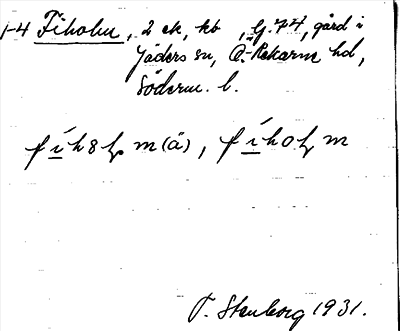 1-4 Fiholm, 2 ek, kb, G. 74, gård i
Jäders sn, Ö. Rekarne hd,
Söderm. l.
fíh8lm(ä), fíholm
T. Stenborg 1931.